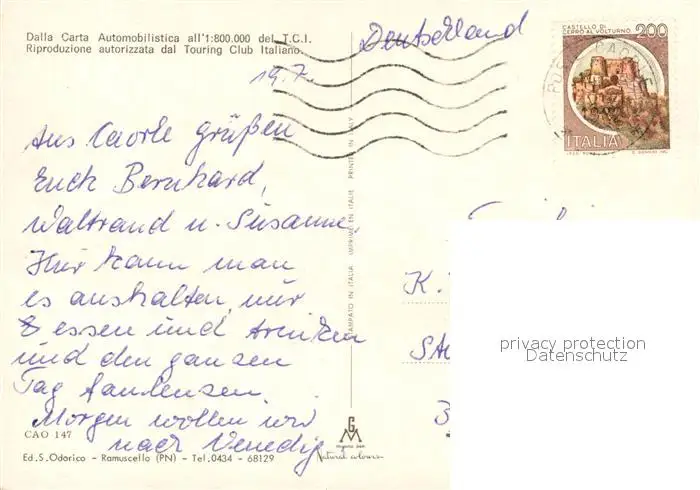 Dalla Carta Automobilistica all'1:800.000 del T.C.I.
Riproduzione autorizzata dal Touring Club Italiano.
19.7.
Aus Caorle grüßen
Euch Bernhard,
Waltraud u. Susanne.
Hier kann man
es aushalten, nur
essen und trinken
und den ganzen
Tag faulenzen.
Morgen wollen wir
nach Venedig
CAO 147
Ed. S. Odorico - Ramuscello (PN) - Tel. 0434 - 68129
STAMPATO IN ITALIA IMPRIMÉ EN ITALIE PRINTED IN ITALY
Natural colours
Deutschland
CASTELLO DI
CERRO AL VOLTURNO
200
ITALIA
K.
3
privacy protection
Datenschutz